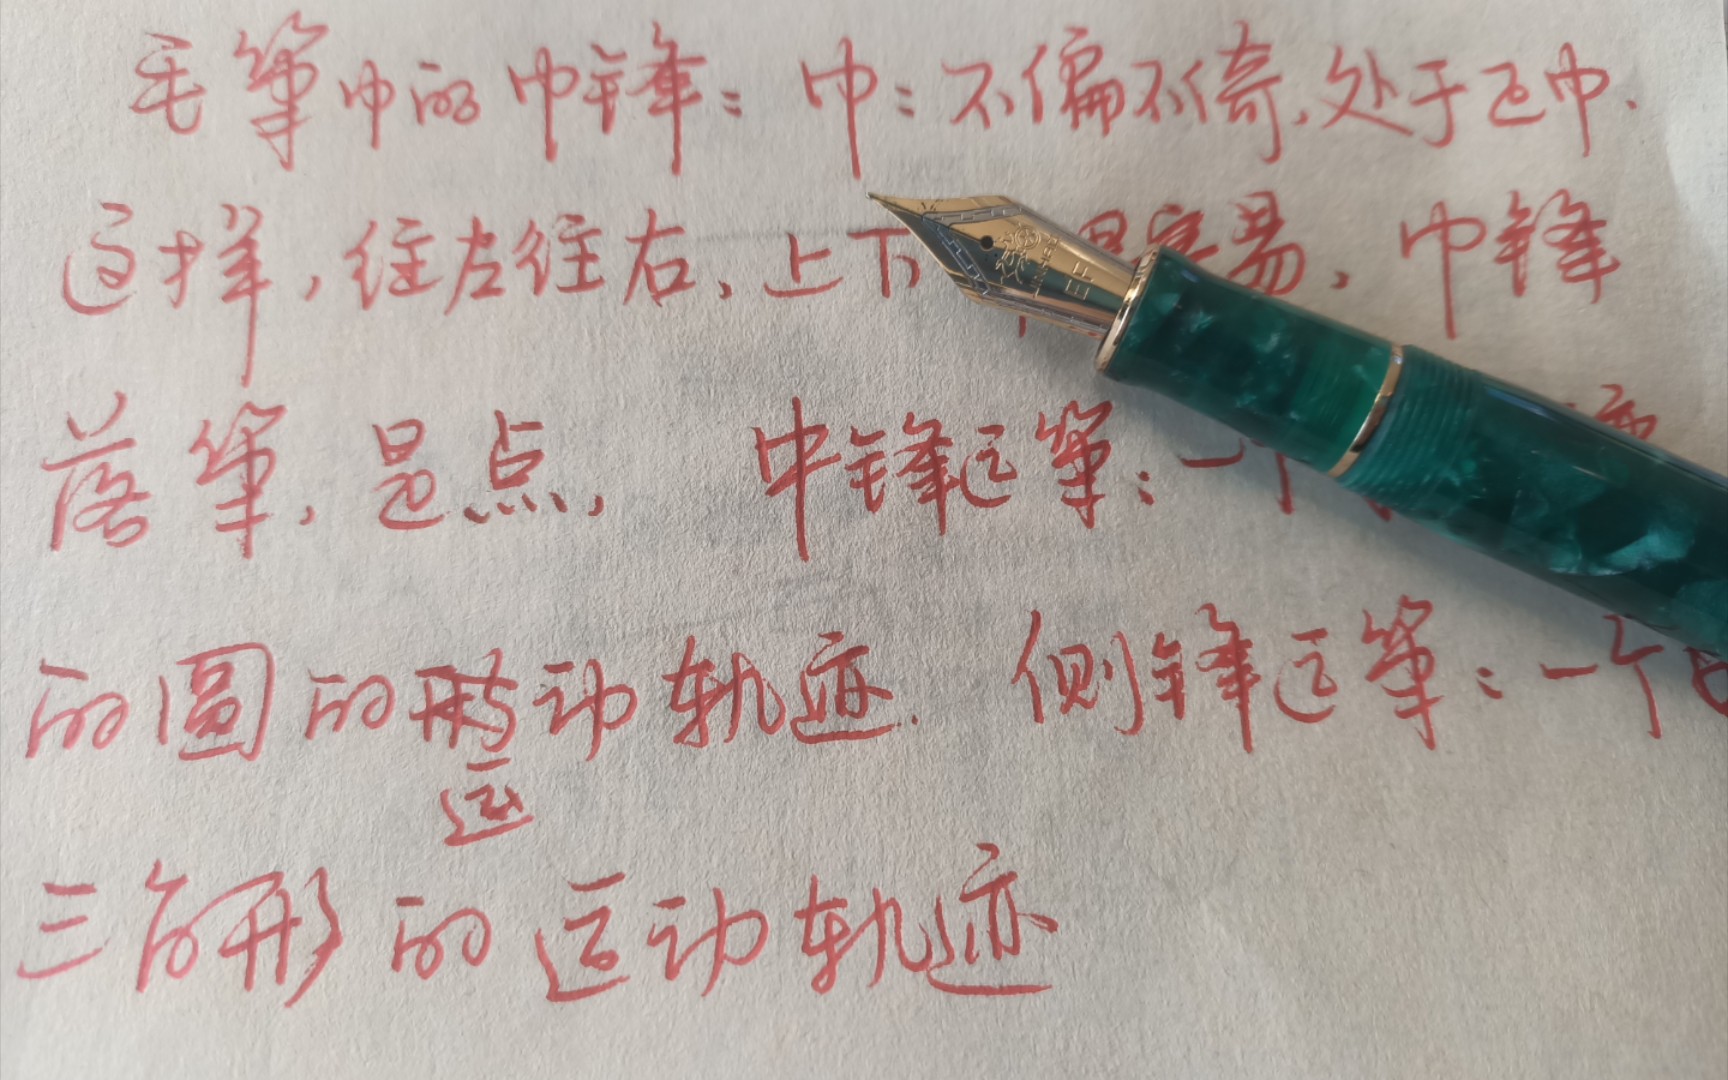 毛笔中的中锋：中：不偏不倚，处于正中．
这样，往左往右，上下 容易，中锋
落笔，是点， 中锋运笔：一个
的圆的运动轨迹．侧锋运笔：一个
三角形的运动轨迹
EF